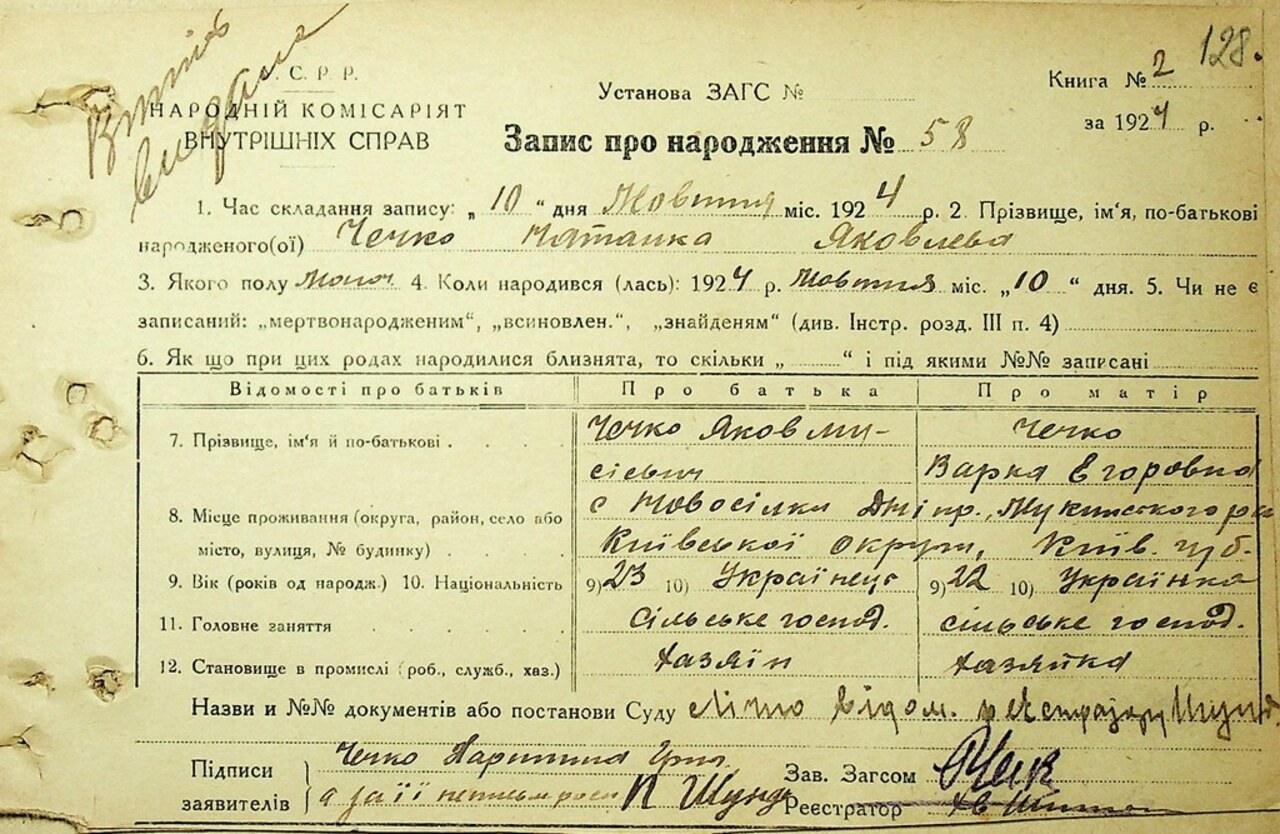 128.
Витяг
видано
С. Р. Р.
НАРОДНІЙ КОМІСАРІЯТ
ВНУТРІШНІХ СПРАВ
Установа ЗАГС №
Книга № 2
за 1924 р.
Запис про народження № 58
1. Час складання запису: „ 10 “ дня Жовтня міс. 1924 р. 2. Прізвище, ім'я, по-батькові
народженого(ої) Чечко Яковлева
3. Якого полу 4. Коли народився (лась): 1924 р. Жовтня міс. „ 10 “ дня. 5. Чи не є
записаний: „мертвонародженим“, „всиновлен.“, „знайденям“ (див. Інстр. розд. III п. 4)
6. Як що при цих родах народилися близнята, то скільки „ “ і під якими №№ записані
Відомості про батьків Про батька Про матір
7. Прізвище, ім'я й по-батькові . Чечко Яков Му- Чечко
сієвич Варка Егоровна
8. Місце проживання (округа, район, село або с Новосілки Дніпр.,
місто, вулиця, № будинку) . Київської округи, Київ. губ.
9. Вік (років од народж.) 10. Національність 9) 23 10) Українець 9) 22 10) Українка
11. Головне заняття Сільське господ. сільське господ.
12. Становище в промислі (роб., служб., хаз.) хазяїн хазяйка
Назви и №№ документів або постанови Суду відом.
Підписи Чечко
заявителів а за її П Шунд
Зав. Загсом
Реєстратор